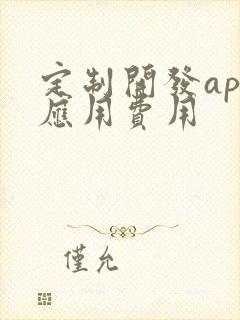 定制開發ap
應用費用
僅允